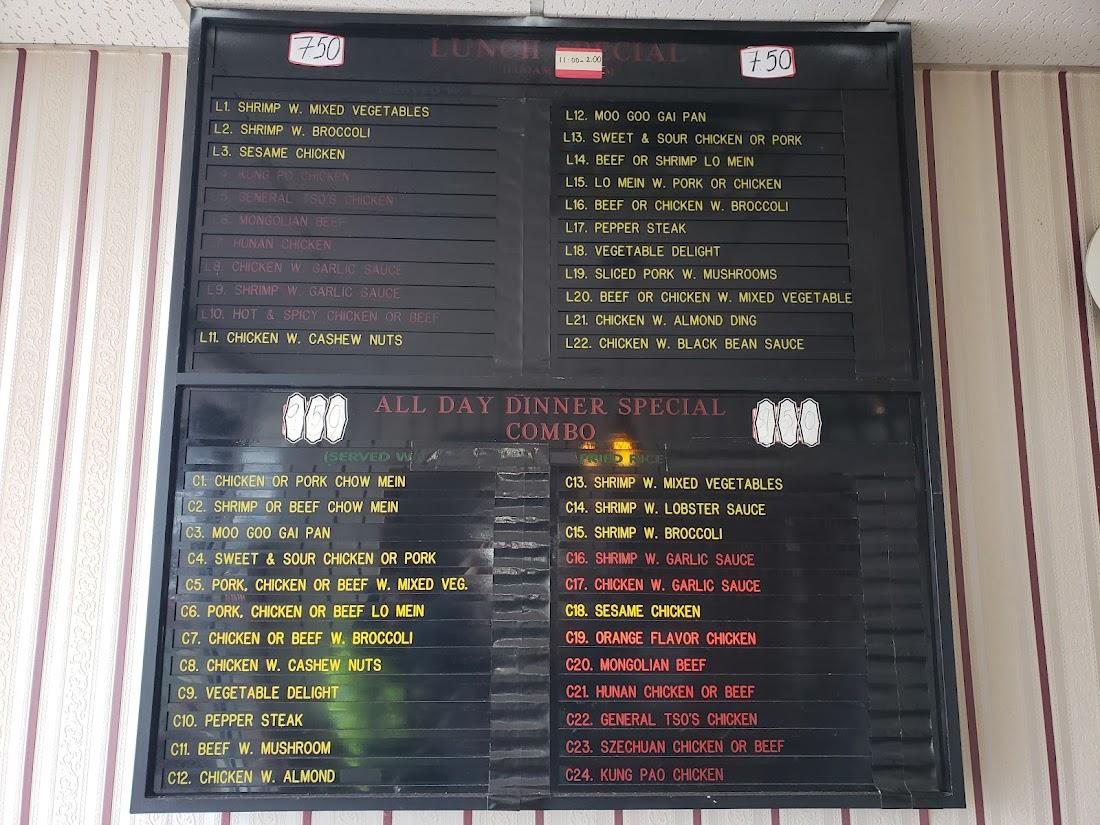 LUNCH SPECIAL
750
11:00-2:00
750
L1. SHRIMP W. MIXED VEGETABLES
L2. SHRIMP W. BROCCOLI
L3. SESAME CHICKEN
4. KUNG PO CHICKEN
5. GENERAL TSO'S CHICKEN
6. MONGOLIAN BEEF
7. HUNAN CHICKEN
L8. CHICKEN W. GARLIC SAUCE
L9. SHRIMP W. GARLIC SAUCE
L10. HOT & SPICY CHICKEN OR BEEF
L11. CHICKEN W. CASHEW NUTS
L12. MOO GOO GAI PAN
L13. SWEET & SOUR CHICKEN OR PORK
L14. BEEF OR SHRIMP LO MEIN
L15. LO MEIN W. PORK OR CHICKEN
L16. BEEF OR CHICKEN W. BROCCOLI
L17. PEPPER STEAK
L18. VEGETABLE DELIGHT
L19. SLICED PORK W. MUSHROOMS
L20. BEEF OR CHICKEN W. MIXED VEGETABLE
L21. CHICKEN W. ALMOND DING
L22. CHICKEN W. BLACK BEAN SAUCE
ALL DAY DINNER SPECIAL
COMBO
(SERVED W FRIED RICE
C1. CHICKEN OR PORK CHOW MEIN
C2. SHRIMP OR BEEF CHOW MEIN
C3. MOO GOO GAI PAN
C4. SWEET & SOUR CHICKEN OR PORK
C5. PORK, CHICKEN OR BEEF W. MIXED VEG.
C6. PORK, CHICKEN OR BEEF LO MEIN
C7. CHICKEN OR BEEF W. BROCCOLI
C8. CHICKEN W. CASHEW NUTS
C9. VEGETABLE DELIGHT
C10. PEPPER STEAK
C11. BEEF W. MUSHROOM
C12. CHICKEN W. ALMOND
C13. SHRIMP W. MIXED VEGETABLES
C14. SHRIMP W. LOBSTER SAUCE
C15. SHRIMP W. BROCCOLI
C16. SHRIMP W. GARLIC SAUCE
C17. CHICKEN W. GARLIC SAUCE
C18. SESAME CHICKEN
C19. ORANGE FLAVOR CHICKEN
C20. MONGOLIAN BEEF
C21. HUNAN CHICKEN OR BEEF
C22. GENERAL TSO'S CHICKEN
C23. SZECHUAN CHICKEN OR BEEF
C24. KUNG PAO CHICKEN